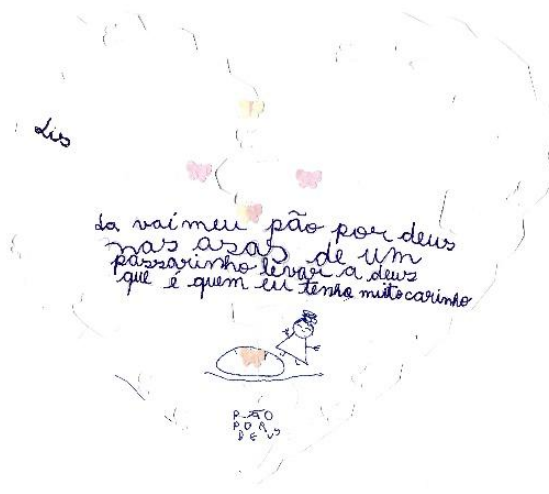 Lis
La vai meu pão por deus
nas asas de um
passarinho levar a deus
que é quem eu tenho muito carinho
PÃO
POR
DEUS